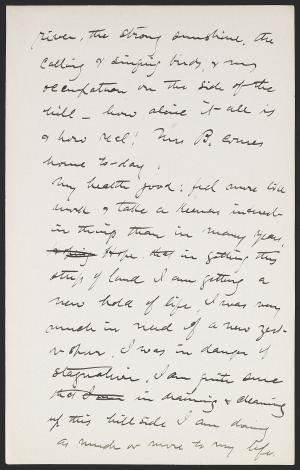 river, the strong sunshine, the
calling & singing birds, & my
occupation on the side of the
hill - how alive it all is
& how real! Mrs B. comes
home to-day.
My health good; feel more like
work & take a keener interest
in things than in many years,
Hope that in getting this
strip of land I am getting a
new hold of life, I was very
much in need of a new zest-
I was in danger of
stagnation, I am quite sure
that in draining & clearing
up this hillside I am doing
as much or more to my life.